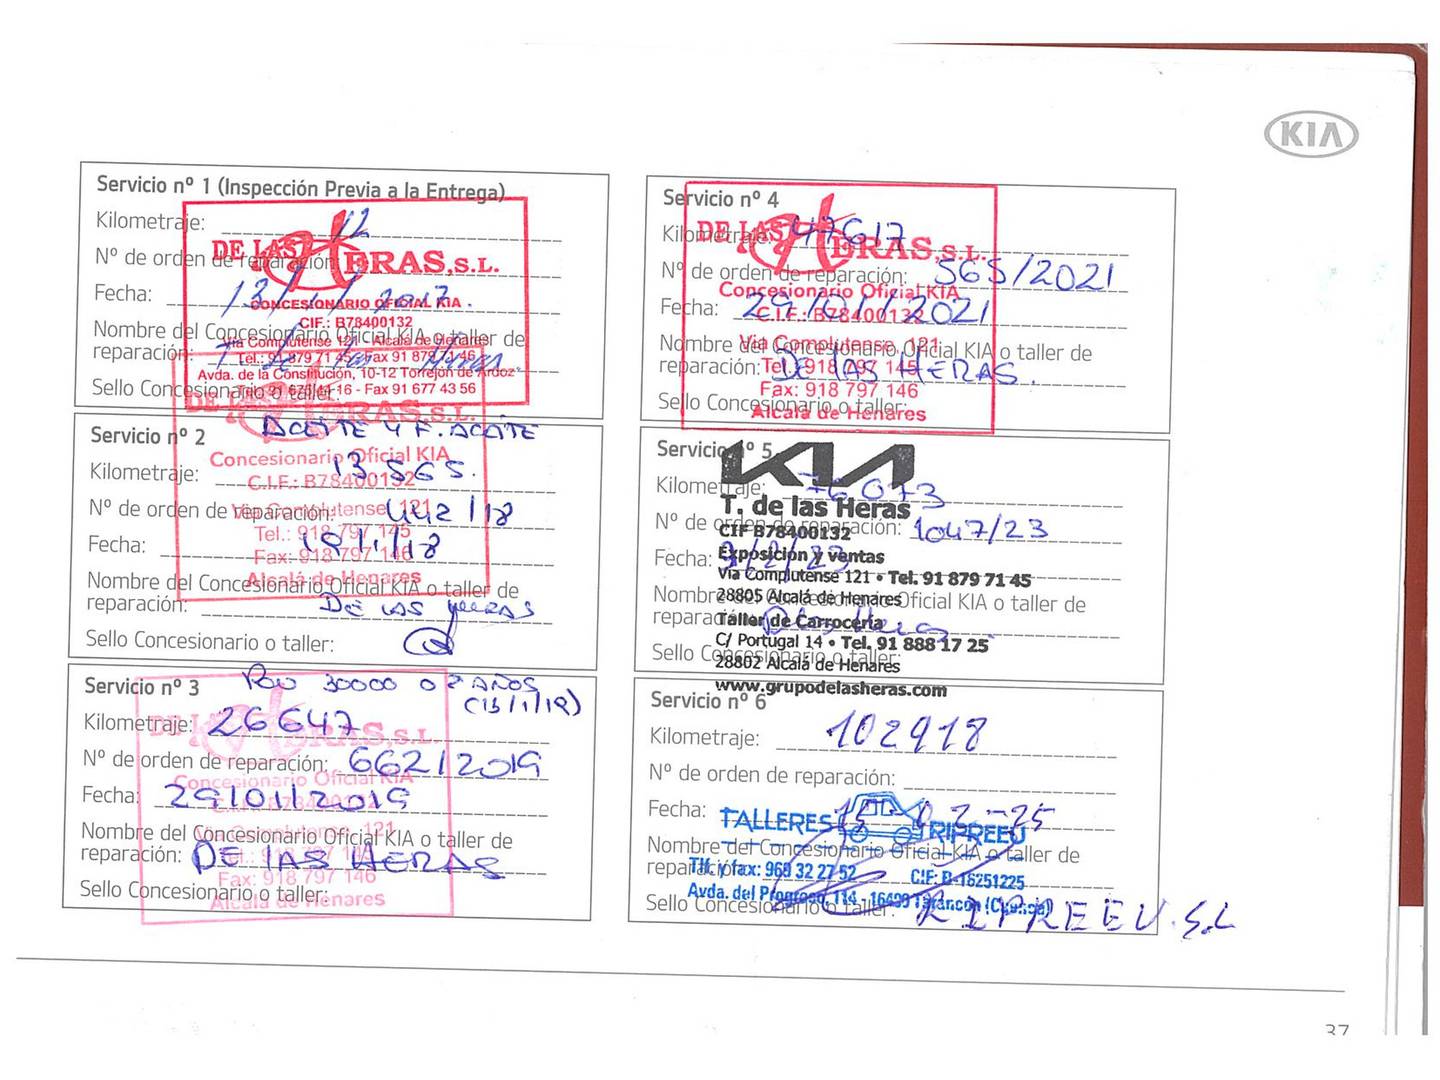 KIA
Servicio nº 1 (Inspección Previa a la Entrega)
Kilometraje: 12
Nº de orden de reparación:
Fecha: 13/1/2017.
Nombre del Concesionario Oficial KIA o taller de
reparación:
Sello Concesionario o taller:
DE LAS HERAS, S.L.
CONCESIONARIO OFICIAL KIA
CIF.: B78400132
Vía Complutense 121 - Alcalá de Henares
Tel.: 91 879 71 45 - Fax 91 879 71 46
Avda. de la Constitución, 10-12 Torrejón de Ardoz
Fax 91 677 43 56
Servicio nº 2 ACEITE Y F. ACEITE
Kilometraje: 13565.
Nº de orden de reparación: 442/18
Fecha: 15/1/18
Nombre del Concesionario Oficial KIA o taller de
reparación: DE LAS HERAS
Sello Concesionario o taller:
DE LAS HERAS, S.L.
Concesionario Oficial KIA
C.I.F.: B78400132
Vía Complutense, 121
Tel.: 918 797 145
Fax: 918 797 146
Alcalá de Henares
Servicio nº 3 30000 O 2 AÑOS
Kilometraje: 26647
Nº de orden de reparación: 662/2019
Fecha: 29/01/2019
Nombre del Concesionario Oficial KIA o taller de
reparación: DE LAS HERAS
Sello Concesionario o taller:
DE LAS HERAS, S.L.
Concesionario Oficial KIA
Fax: 918 797 146
Alcalá de Henares
Servicio nº 4
Kilometraje: 47617
Nº de orden de reparación: 565/2021
Fecha: 29/01/2021
Nombre del Concesionario Oficial KIA o taller de
reparación: DE LAS HERAS.
Sello Concesionario o taller:
DE LAS HERAS, S.L.
Concesionario Oficial KIA
C.I.F.: B78400132
Vía Complutense, 121
Tel.: 918 797 145
Fax: 918 797 146
Alcalá de Henares
Servicio nº 5
Kilometraje: 76073
Nº de orden de reparación: 1047/23
Fecha: 3/2/23
Nombre del Concesionario Oficial KIA o taller de
reparación: De las Heras
Sello Concesionario o taller:
KIA
T. de las Heras
CIF B78400132
Exposición y ventas
Vía Complutense 121 • Tel. 91 879 71 45
28805 Alcalá de Henares
Taller de Carrocería
C/ Portugal 14 • Tel. 91 888 17 25
28802 Alcalá de Henares
www.grupodelasheras.com
Servicio nº 6
Kilometraje: 102918
Nº de orden de reparación:
Fecha: 15-02-25
Nombre del Concesionario Oficial KIA o taller de
reparación:
Sello Concesionario o taller: RIPREEU.S.L
TALLERES RIPREEU
Tlf. y fax: 969 32 27 52 CIF: B-16251225
Avda. del Progreso, 114 - 16400 Tarancón (Cuenca)
37